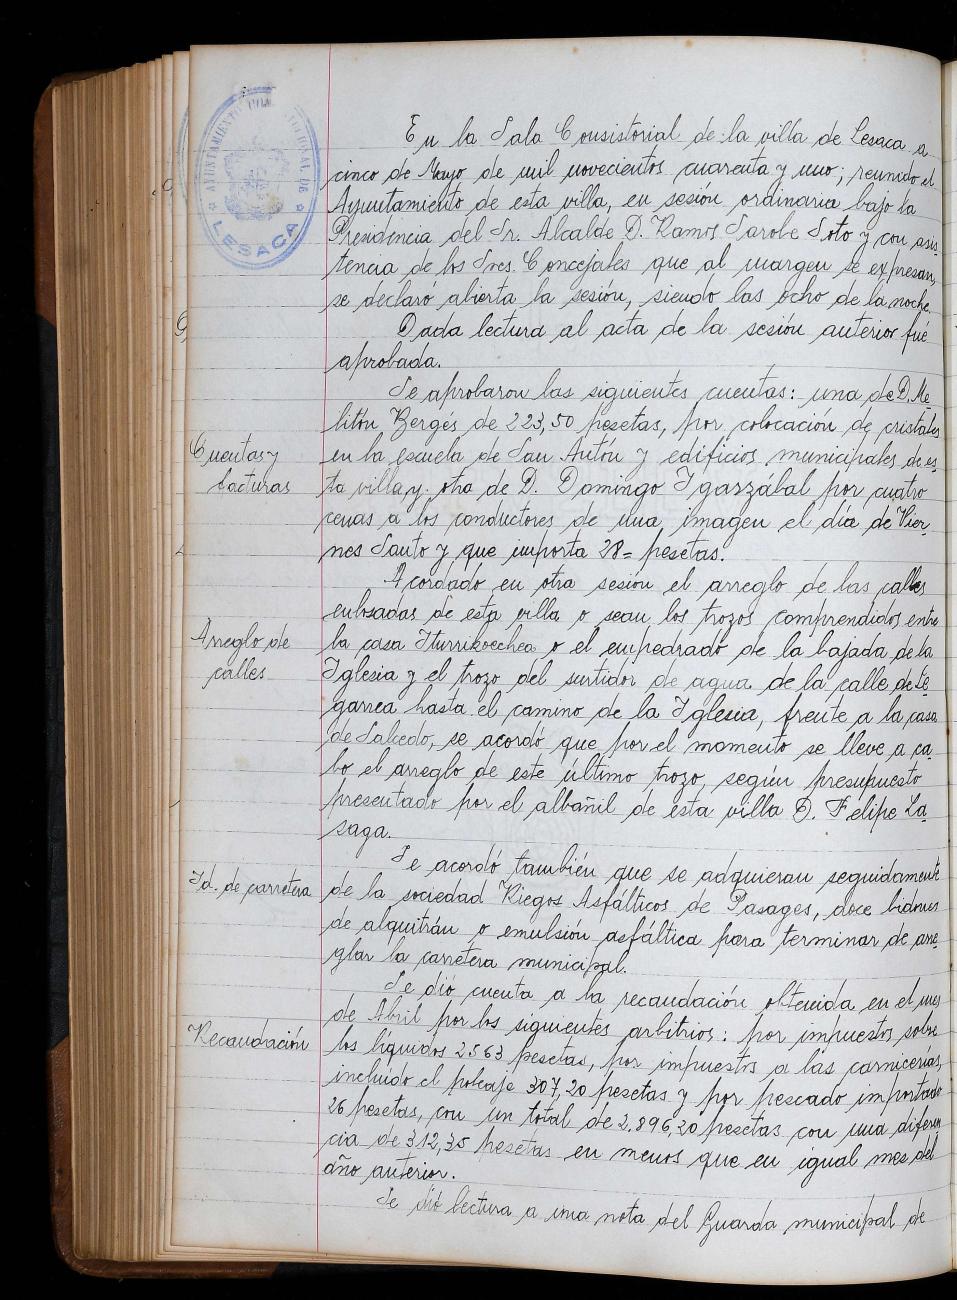 AYUNTAMIENTO DE
LESACA
En la Sala Consistorial de la villa de Lesaca a
cinco de Mayo de mil novecientos cuarenta y uno; reunido el
Ayuntamiento de esta villa, en sesión ordinaria bajo la
Presidencia del Sr. Alcalde D. Ramos Sarobe Soto y con asis
tencia de los Sres. Concejales que al margen se expresan,
se declaró abierta la sesión, siendo las ocho de la noche.
Dada lectura al acta de la sesión anterior fué
aprobada.
Cuentas y
facturas
Se aprobaron las siguientes cuentas: una de D. Me
litón Bergés de 223,50 pesetas, por colocación de cristales
en la escuela de San Antón y edificios municipales de es
ta villa y otra de D. Domingo Igarzábal por cuatro
cenas a los conductores de una imagen el día de Vier
nes Santo y que importa 28= pesetas.
Arreglo de
calles
Acordado en otra sesión el arreglo de las calles
enlosadas de esta villa o sean los trozos comprendidos entre
la casa Iturrikoechea o el empedrado de la bajada de la
Iglesia y el trozo del surtidor de agua de la calle de Le
garrea hasta el camino de la Iglesia, frente a la casa
de Salcedo, se acordó que por el momento se lleve a ca
bo el arreglo de este último trozo, según presupuesto
presentado por el albañil de esta villa D. Felipe La
saga.
Id. de carretera
Se acordó también que se adquieran seguidamente
de la sociedad Riegos Asfálticos de Pasages, doce bidones
de alquitrán o emulsión asfáltica para terminar de arre
glar la carretera municipal.
Recaudación
Se dió cuenta a la recaudación obtenida en el mes
de Abril por los siguientes arbitrios: por impuestos sobre
los líquidos 2563 pesetas, por impuestos a las carnicerías,
incluído el poteaje 307,20 pesetas y por pescado importado
26 pesetas, con un total de 2.896,20 pesetas con una diferen
cia de 312,35 pesetas en menos que en igual mes del
año anterior.
Se dió lectura a una nota del Guarda municipal de